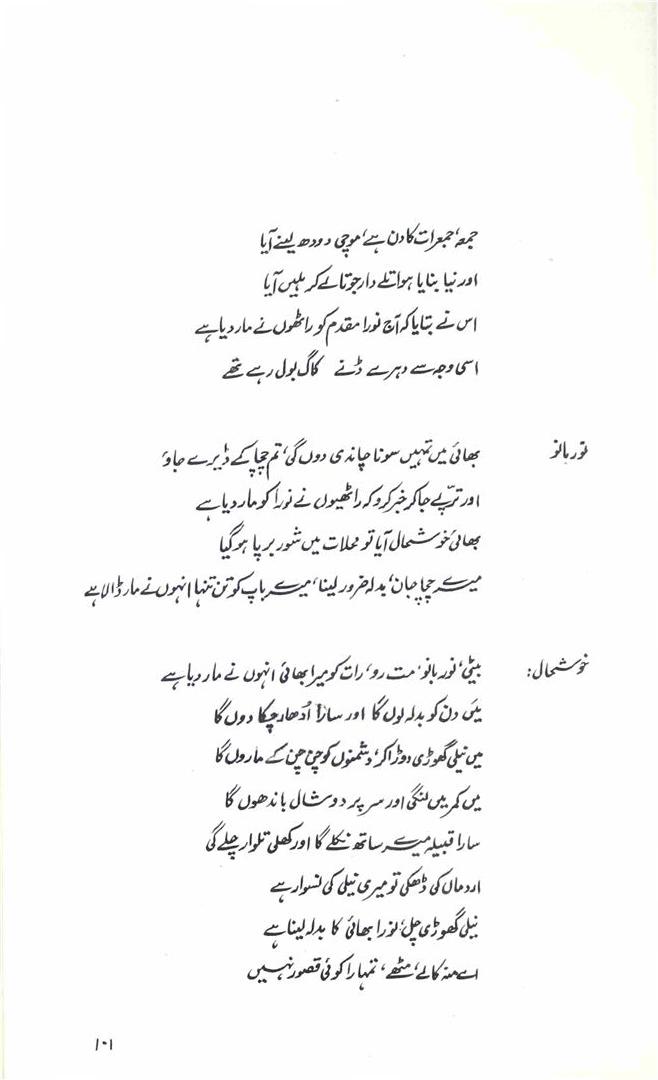 جمعہ، جمعرات کا دن ہے، موچی دودھ لینے آیا
اور نیا بنایا ہوا تلے دار جوتا لے کر ہلیں آیا
اس نے بتایا کہ آج نورا مقدم کو راٹھوں نے مار دیا ہے
اسی وجہ سے دہرے ڈنے کاگ بول رہے تھے
نور بانو بھائی میں تمہیں سونا چاندی دوں گی، تم چچا کے ڈیرے جاؤ
اور ترپے جا کر خبر کرو کہ راٹھیوں نے نورا کو مار دیا ہے
بھائی خوشحال آیا تو محلات میں شور برپا ہو گیا
میرے چچا جان، بدلہ ضرور لینا، میرے باپ کو تن تنہا انہوں نے مار ڈالا ہے
خوشحال: بیٹی، نور بانو، مت رو، رات کو میرا بھائی انہوں نے مار دیا ہے
میں دن کو بدلہ لوں گا اور سارا اُدھار چکا دوں گا
میں نیلی گھوڑی دوڑا کر، دشمنوں کو چن چن کے ماروں گا
میں کمر میں لنگی اور سر پر دوشال باندھوں گا
سارا قبیلہ میرے ساتھ نکلے گا اور کھلی تلوار چلے گی
اردماں کی ڈھکی تو میری نیلی کی نسوار ہے
نیلی گھوڑی چل، نورا بھائی کا بدلہ لینا ہے
اے منہ کالے، مٹھے، تمہارا کوئی قصور نہیں
۱۰۱